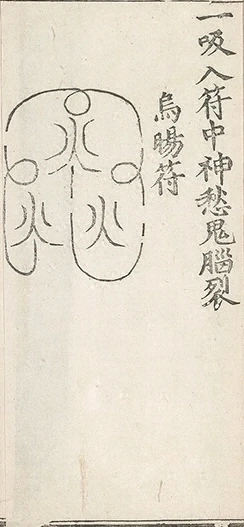 一吸入符中神愁鬼腦裂
烏暘符
火
火火